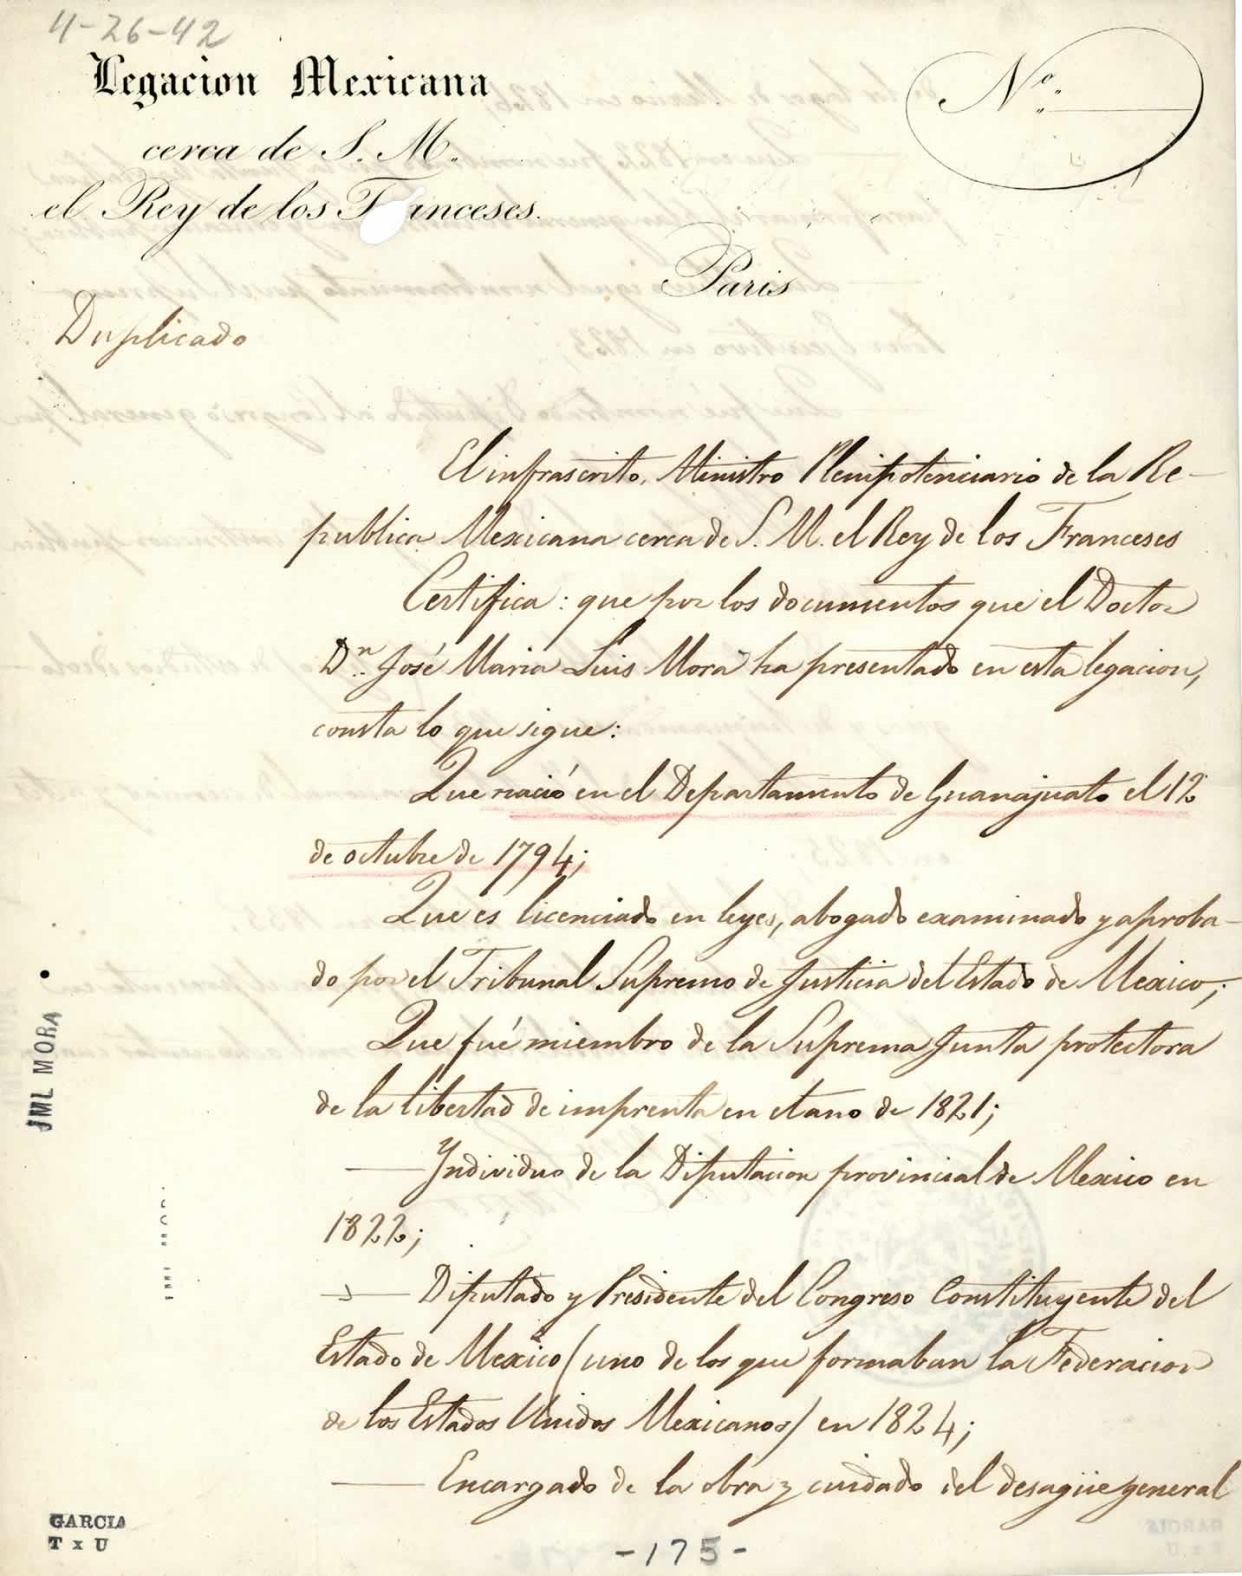 4-26-42
Legacion Mexicana
cerca de S. M.
el Rey de los F anceses.
Nº.
Paris
Duplicado
El infrascrito, Ministro Plenipotenciario de la Re-
publica Mexicana cerca de S. M. el Rey de los Franceses
Certifica: que por los documentos que el Doctor
Dⁿ. José Maria Luis Mora ha presentado en esta legacion,
consta lo que sigue:
Que nació en el Departamento de Guanajuato el 12
de octubre de 1794;
Que es licenciado en leyes, abogado examinado y aproba-
do por el Tribunal Supremo de Justicia del Estado de Mexico;
Que fué miembro de la Suprema Junta protectora
de la libertad de imprenta en el ano de 1821;
— Individuo de la Diputacion provincial de Mexico en
1822;
— Diputado y Presidente del Congreso Constituyente del
Estado de Mexico (uno de los que formaban la Federacion
de los Estados Unidos Mexicanos) en 1824;
— Encargado de la obra y cuidado del desagüe general
JML MORA
GARCIA
T x U
-175-